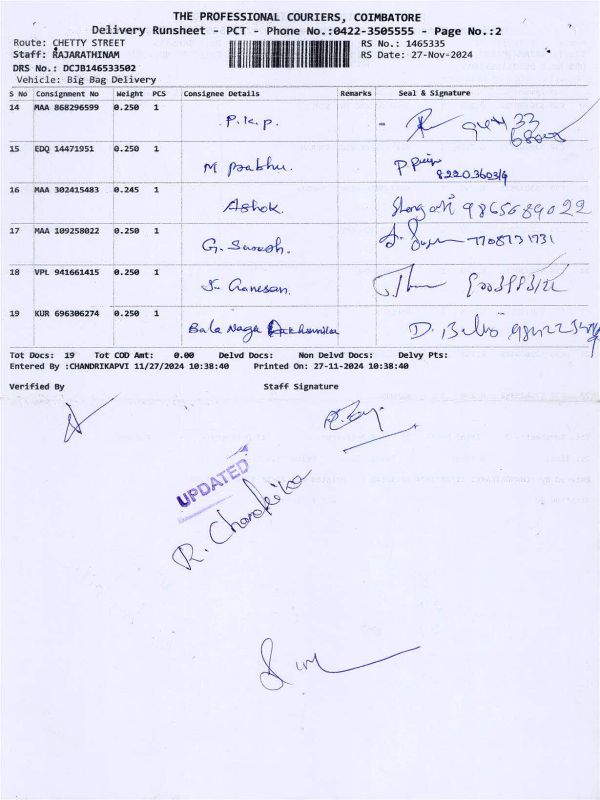 THE PROFESSIONAL COURIERS, COIMBATORE
Delivery Runsheet - PCT - Phone No.:0422-3505555 - Page No.:2
Route: CHETTY STREET RS No.: 1465335
Staff: RAJARATHINAM RS Date: 27-Nov-2024
DRS No.: DCJB146533502
Vehicle: Big Bag Delivery
S No Consignment No Weight PCS Consignee Details Remarks Seal & Signature
14 MAA 868296599 0.250 1 P.K.P.
15 EDQ 14471951 0.250 1 M Prabhu.
16 MAA 302415483 0.245 1 Ashok. 9865689022
17 MAA 109258022 0.250 1 G. Suresh. 7708731731
18 VPL 941661415 0.250 1 Ganesan.
19 KUR 696306274 0.250 1 Bala Naga
Tot Docs: 19 Tot COD Amt: 0.00 Delvd Docs: Non Delvd Docs: Delvy Pts:
Entered By :CHANDRIKAPVI 11/27/2024 10:38:40 Printed On: 27-11-2024 10:38:40
Verified By Staff Signature
UPDATED
R. Chandrika